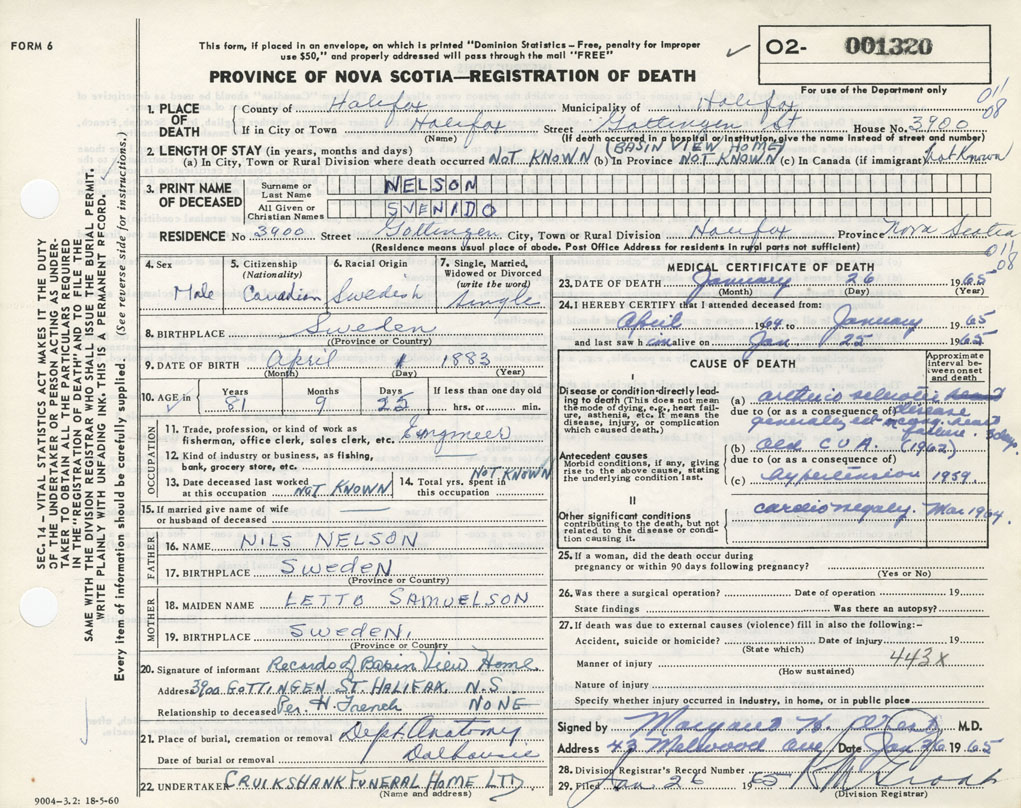 FORM 6
This form, if placed in an envelope, on which is printed "Dominion Statistics - Free, penalty for improper
use $50," and properly addressed will pass through the mail "FREE"
✓
O2- 001320
PROVINCE OF NOVA SCOTIA—REGISTRATION OF DEATH
For use of the Department only
1. PLACE OF DEATH County of Halifax Municipality of Halifax 011
08
If in City or Town Halifax Street Gottingen St House No. 3900
(Name) (If death occurred in a hospital or institution, give the name instead of street and number)
2. LENGTH OF STAY (in years, months and days) (BASIN VIEW HOME)
(a) In City, Town or Rural Division where death occurred NOT KNOWN (b) In Province NOT KNOWN (c) In Canada (if immigrant) Not Known
3. PRINT NAME OF DECEASED Surname or Last Name NELSON
All Given or Christian Names SVENIDO
RESIDENCE No. 3900 Street Gottingen City, Town or Rural Division Halifax Province Nova Scotia
(Residence means usual place of abode. Post Office Address for residents in rural parts not sufficient)
011
08
4. Sex Male
5. Citizenship (Nationality) Canadian
6. Racial Origin Swedish
7. Single, Married, Widowed or Divorced (write the word) Single
8. BIRTHPLACE Sweden
(Province or Country)
9. DATE OF BIRTH April 1 1883
(Month) (Day) (Year)
10. AGE in Years 81 Months 9 Days 25 If less than one day old hrs. or min.
✓
OCCUPATION
11. Trade, profession, or kind of work as fisherman, office clerk, sales clerk, etc. Engineer
12. Kind of industry or business, as fishing, bank, grocery store, etc.
13. Date deceased last worked at this occupation NOT KNOWN
14. Total yrs. spent in this occupation NOT KNOWN
15. If married give name of wife or husband of deceased
FATHER
16. NAME NILS NELSON
17. BIRTHPLACE SWEDEN
(Province or Country)
MOTHER
18. MAIDEN NAME LETTO SAMUELSON
19. BIRTHPLACE SWEDEN,
(Province or Country)
20. Signature of informant Records of Basin View Home
Address 3900 GOTTINGEN ST. HALIFAX, N.S.
Relationship to deceased Per. H. French NONE
21. Place of burial, cremation or removal Dept Anatomy
Date of burial or removal Dalhousie
22. UNDERTAKER CRUIKSHANK FUNERAL HOME LTD
(Name and address)
MEDICAL CERTIFICATE OF DEATH
23. DATE OF DEATH January 26 1965
(Month) (Day) (Year)
24. I HEREBY CERTIFY that I attended deceased from:
April 1964 to January 1965
and last saw him alive on Jan 25 1965
CAUSE OF DEATH
Approximate interval between onset and death
I
Disease or condition directly leading to death (This does not mean the mode of dying, e.g., heart failure, asthenia, etc. It means the disease, injury, or complication which caused death.)
(a) arterio sclerotic
due to (or as a consequence of) disease
generalized heart failure. 3 days.
(b) Old C.V.A. (1962)
due to (or as a consequence of)
(c) hypertension 1959.
Antecedent causes
Morbid conditions, if any, giving rise to the above cause, stating the underlying condition last.
II
Other significant conditions
contributing to the death, but not related to the disease or condition causing it.
cardiomegaly. Mar 1964.
25. If a woman, did the death occur during
pregnancy or within 90 days following pregnancy?
(Yes or No)
26. Was there a surgical operation? Date of operation 19
State findings Was there an autopsy?
27. If death was due to external causes (violence) fill in also the following:-
Accident, suicide or homicide? Date of injury 19
(State which)
Manner of injury 443x
(How sustained)
Nature of injury
Specify whether injury occurred in industry, in home, or in public place
Signed by Margaret M.D.
Address 43 Melwood Ave Date Jan 26 1965
28. Division Registrar's Record Number
29. Filed Jan 26 1965
(Division Registrar)
SEC. 14 — VITAL STATISTICS ACT MAKES IT THE DUTY
OF THE UNDERTAKER OR PERSON ACTING AS UNDER-
TAKER TO OBTAIN ALL THE PARTICULARS REQUIRED
IN THE "REGISTRATION OF DEATH" AND TO FILE THE
SAME WITH THE DIVISION REGISTRAR WHO SHALL ISSUE THE BURIAL PERMIT.
WRITE PLAINLY WITH UNFADING INK. THIS IS A PERMANENT RECORD.
Every item of information should be carefully supplied. (See reverse side for instructions.)
9004-3.2: 18-5-60